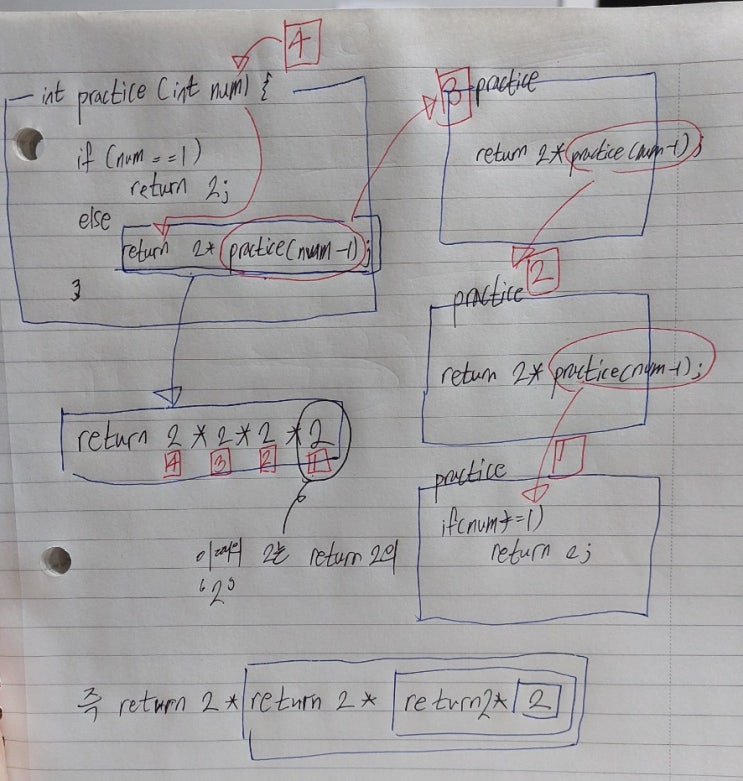 4
int practice (int num) {
if (num == 1)
return 2;
else
return 2* practice(num-1);
}
3 practice
return 2* practice(num-1);
2
practice
return 2* practice(num-1);
1
practice
if(num==1)
return 2;
return 2 * 2 * 2 * 2
4 3 2 1
2는 return 2의
'2'
즉 return 2 * return 2 * return 2 * 2